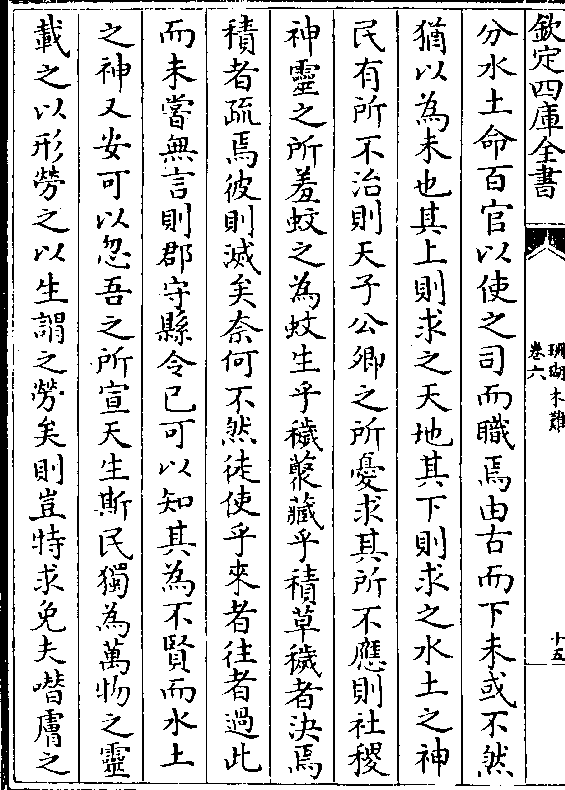 欽定四庫全書
珊瑚木難
卷六
十五
分水土命百官以使之司而職焉由古而下未或不然
猶以為未也其上則求之天地其下則求之水土之神
民有所不治則天子公卿之所憂求其所不應則社稷
神靈之所羞蚊之為蚊生乎穢藂藏乎積草穢者決焉
積者疏焉彼則滅矣奈何不然徒使乎來者往者過此
而未嘗無言則郡守縣令已可以知其為不賢而水土
之神又安可以忽吾之所宣天生斯民獨為萬物之靈
載之以形勞之以生謂之勞矣則豈特求免夫噆膚之